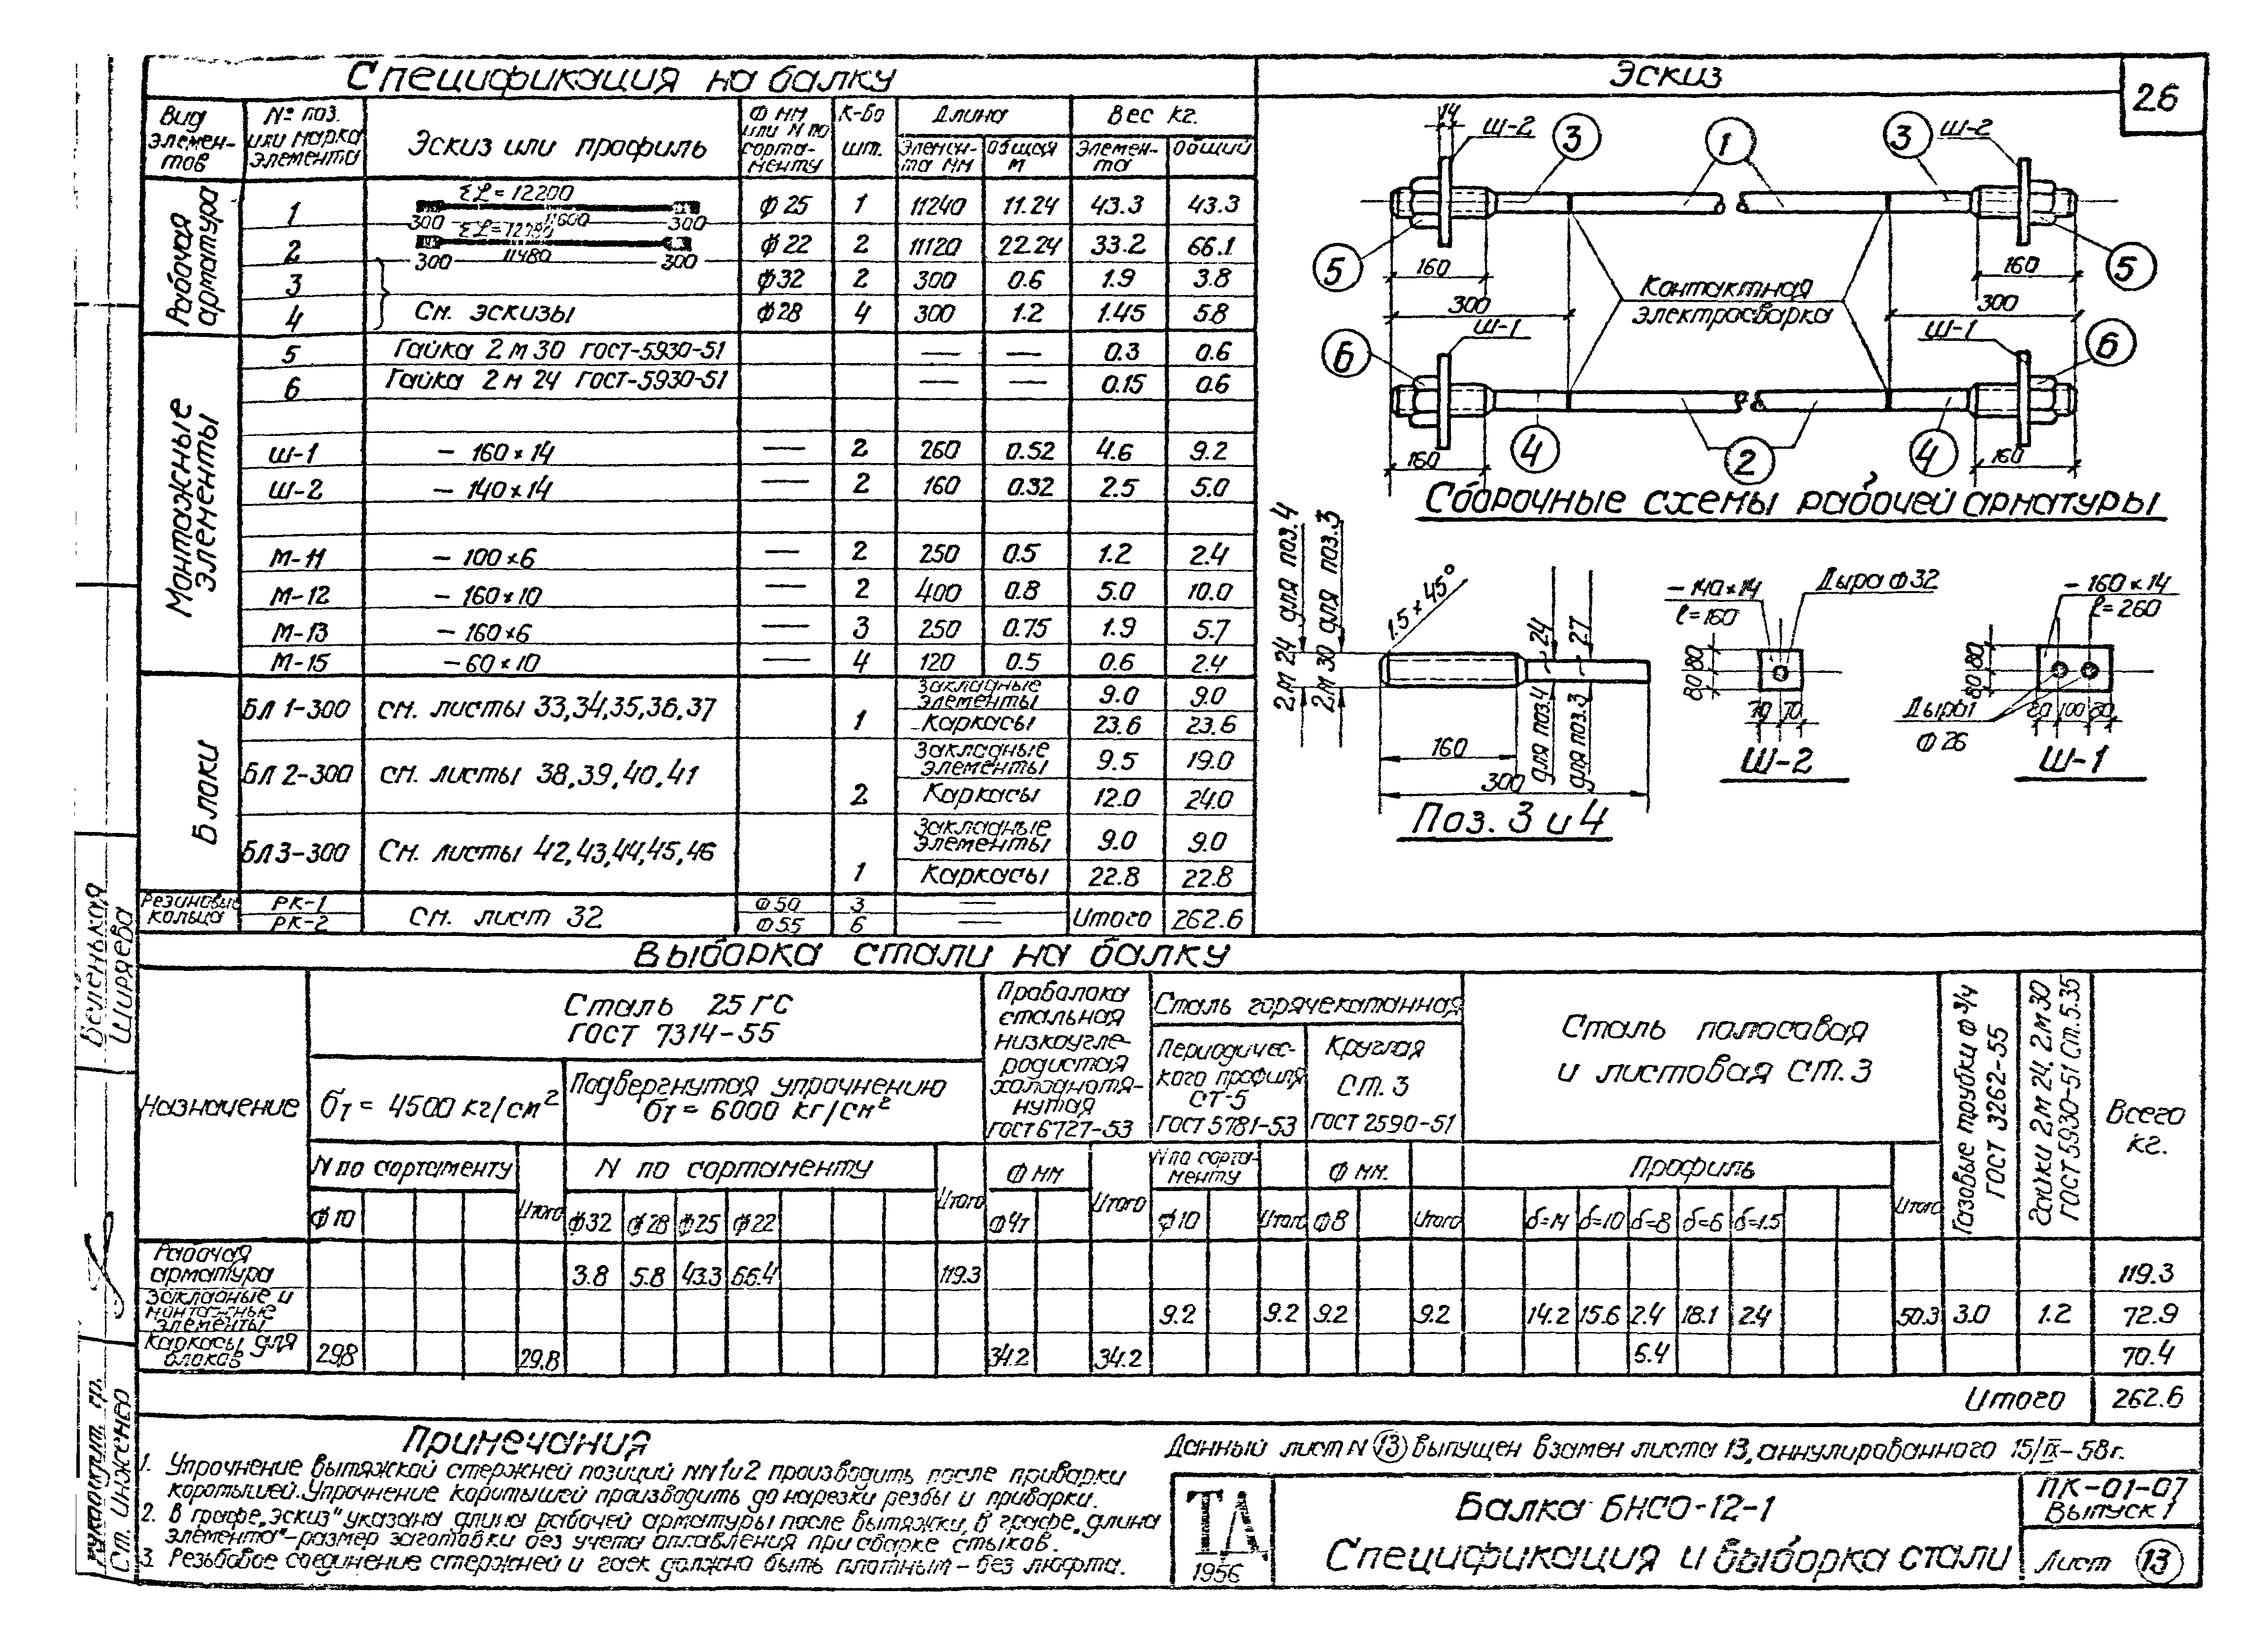 Спецификация на балку
Эскиз
26
Вид элемен-тов | № поз. или марка элемента | Эскиз или профиль | Ф мм или N по сорта-менту | К-во шт. | Длина | Вес кг.
Элемен-та мм | Общая м | Элемен-та | Общий
Рабочая арматура
1 | Σℓ=12200 300 11600 300 | Ф 25 | 1 | 11240 | 11.24 | 43.3 | 43.3
2 | 300 11480 300 | Ф 22 | 2 | 11120 | 22.24 | 33.2 | 66.1
3 | Ф32 | 2 | 300 | 0.6 | 1.9 | 3.8
4 | См. эскизы | Ф28 | 4 | 300 | 1.2 | 1.45 | 5.8
Монтажные элементы
5 | Гайка 2м30 ГОСТ-5930-51 | — | — | 0.3 | 0.6
6 | Гайка 2м 24 ГОСТ-5930-51 | — | — | 0.15 | 0.6
Ш-1 | - 160×14 | — | 2 | 260 | 0.52 | 4.6 | 9.2
Ш-2 | - 140×14 | — | 2 | 160 | 0.32 | 2.5 | 5.0
М-11 | - 100×6 | — | 2 | 250 | 0.5 | 1.2 | 2.4
М-12 | - 160×10 | — | 2 | 400 | 0.8 | 5.0 | 10.0
М-13 | - 160×6 | — | 3 | 250 | 0.75 | 1.9 | 5.7
М-15 | - 60×10 | — | 4 | 120 | 0.5 | 0.6 | 2.4
Блоки
БЛ 1-300 | см. листы 33,34,35,36,37 | 1 | Закладные элементы | 9.0 | 9.0
Каркасы | 23.6 | 23.6
БЛ 2-300 | см. листы 38,39,40,41 | 2 | Закладные элементы | 9.5 | 19.0
Каркасы | 12.0 | 24.0
БЛ3-300 | См. листы 42,43,44,45,46 | 1 | Закладные элементы | 9.0 | 9.0
Каркасы | 22.8 | 22.8
Резиновые кольца | РК-1 | См. лист 32 | Ф50 | 3 | —
РК-2 | Ф55 | 6 | — | Итого | 262.6
14 Ш-2 3 1 3 Ш-2
5 160 160 5
300 Контактная электросварка 300
6 Ш-1 Ш-1 6
160 4 2 4 160
Сборочные схемы рабочей арматуры
2м 24 для поз.4
2м 30 для поз.3
1.5×45°
24 для поз.4
27 для поз.3
160
300
Поз. 3 и 4
- 140×14
ℓ=160
Дыра Ф32
80 80
70 70
Ш-2
- 160×14
ℓ=260
80 80
Дыры
Ф 26
80 100 80
Ш-1
Выборка стали на балку
Назначение
Сталь 25ГС
ГОСТ 7314-55
σт = 4500 кг/см²
Подвергнутая упрочнению
σт = 6000 кг/см²
Проволока стальная низкоугле-родистая холоднотя-нутая ГОСТ6727-53
Сталь горячекатанная
Периодичес-кого профиля СТ-5 ГОСТ5781-53
Круглая Ст. 3 ГОСТ 2590-51
Сталь полосовая
и листовая Ст. 3
Газовые трубки Ф 3/4 ГОСТ 3262-55
Гайки 2м 24, 2м30 ГОСТ5930-51 Ст.5.35
Всего кг.
N по сортаменту | Итого | N по сортаменту | Итого | Ф мм | Итого | N по сорта-менту | Итого | Ф мм. | Итого | Профиль | Итого
Ф10 | Ф32 | Ф28 | Ф25 | Ф22 | Ф4т | Ф10 | Ф8 | δ=14 | δ=10 | δ=8 | δ=6 | δ=1.5
Рабочая арматура | 3.8 | 5.8 | 43.3 | 66.4 | 119.3 | 119.3
Закладные и монтажные элементы | 9.2 | 9.2 | 9.2 | 9.2 | 14.2 | 15.6 | 2.4 | 18.1 | 2.4 | 50.3 | 3.0 | 1.2 | 72.9
Каркасы для блоков | 29.8 | 29.8 | 34.2 | 34.2 | 6.4 | 70.4
Итого 262.6
Примечания
1. Упрочнение вытяжкой стержней позиций NN1и2 производить после приварки
коротышей. Упрочнение коротышей производить до нарезки резбы и приварки.
2. В графе „Эскиз" указана длина рабочей арматуры после вытяжки, в графе „длина
элемента"-размер заготовки без учета оплавления при сварке стыков.
3. Резьбовое соединение стержней и гаек должно быть плотным - без люфта.
Данный лист N 13 выпущен взамен листа 13, аннулированного 15/IX-58г.
ТД
1956
Балка БНСО-12-1
Спецификация и выборка стали
ПК-01-07
Выпуск 1
Лист 13
Беленькая
Ширяева
Руководит. гр.
Ст. инженер